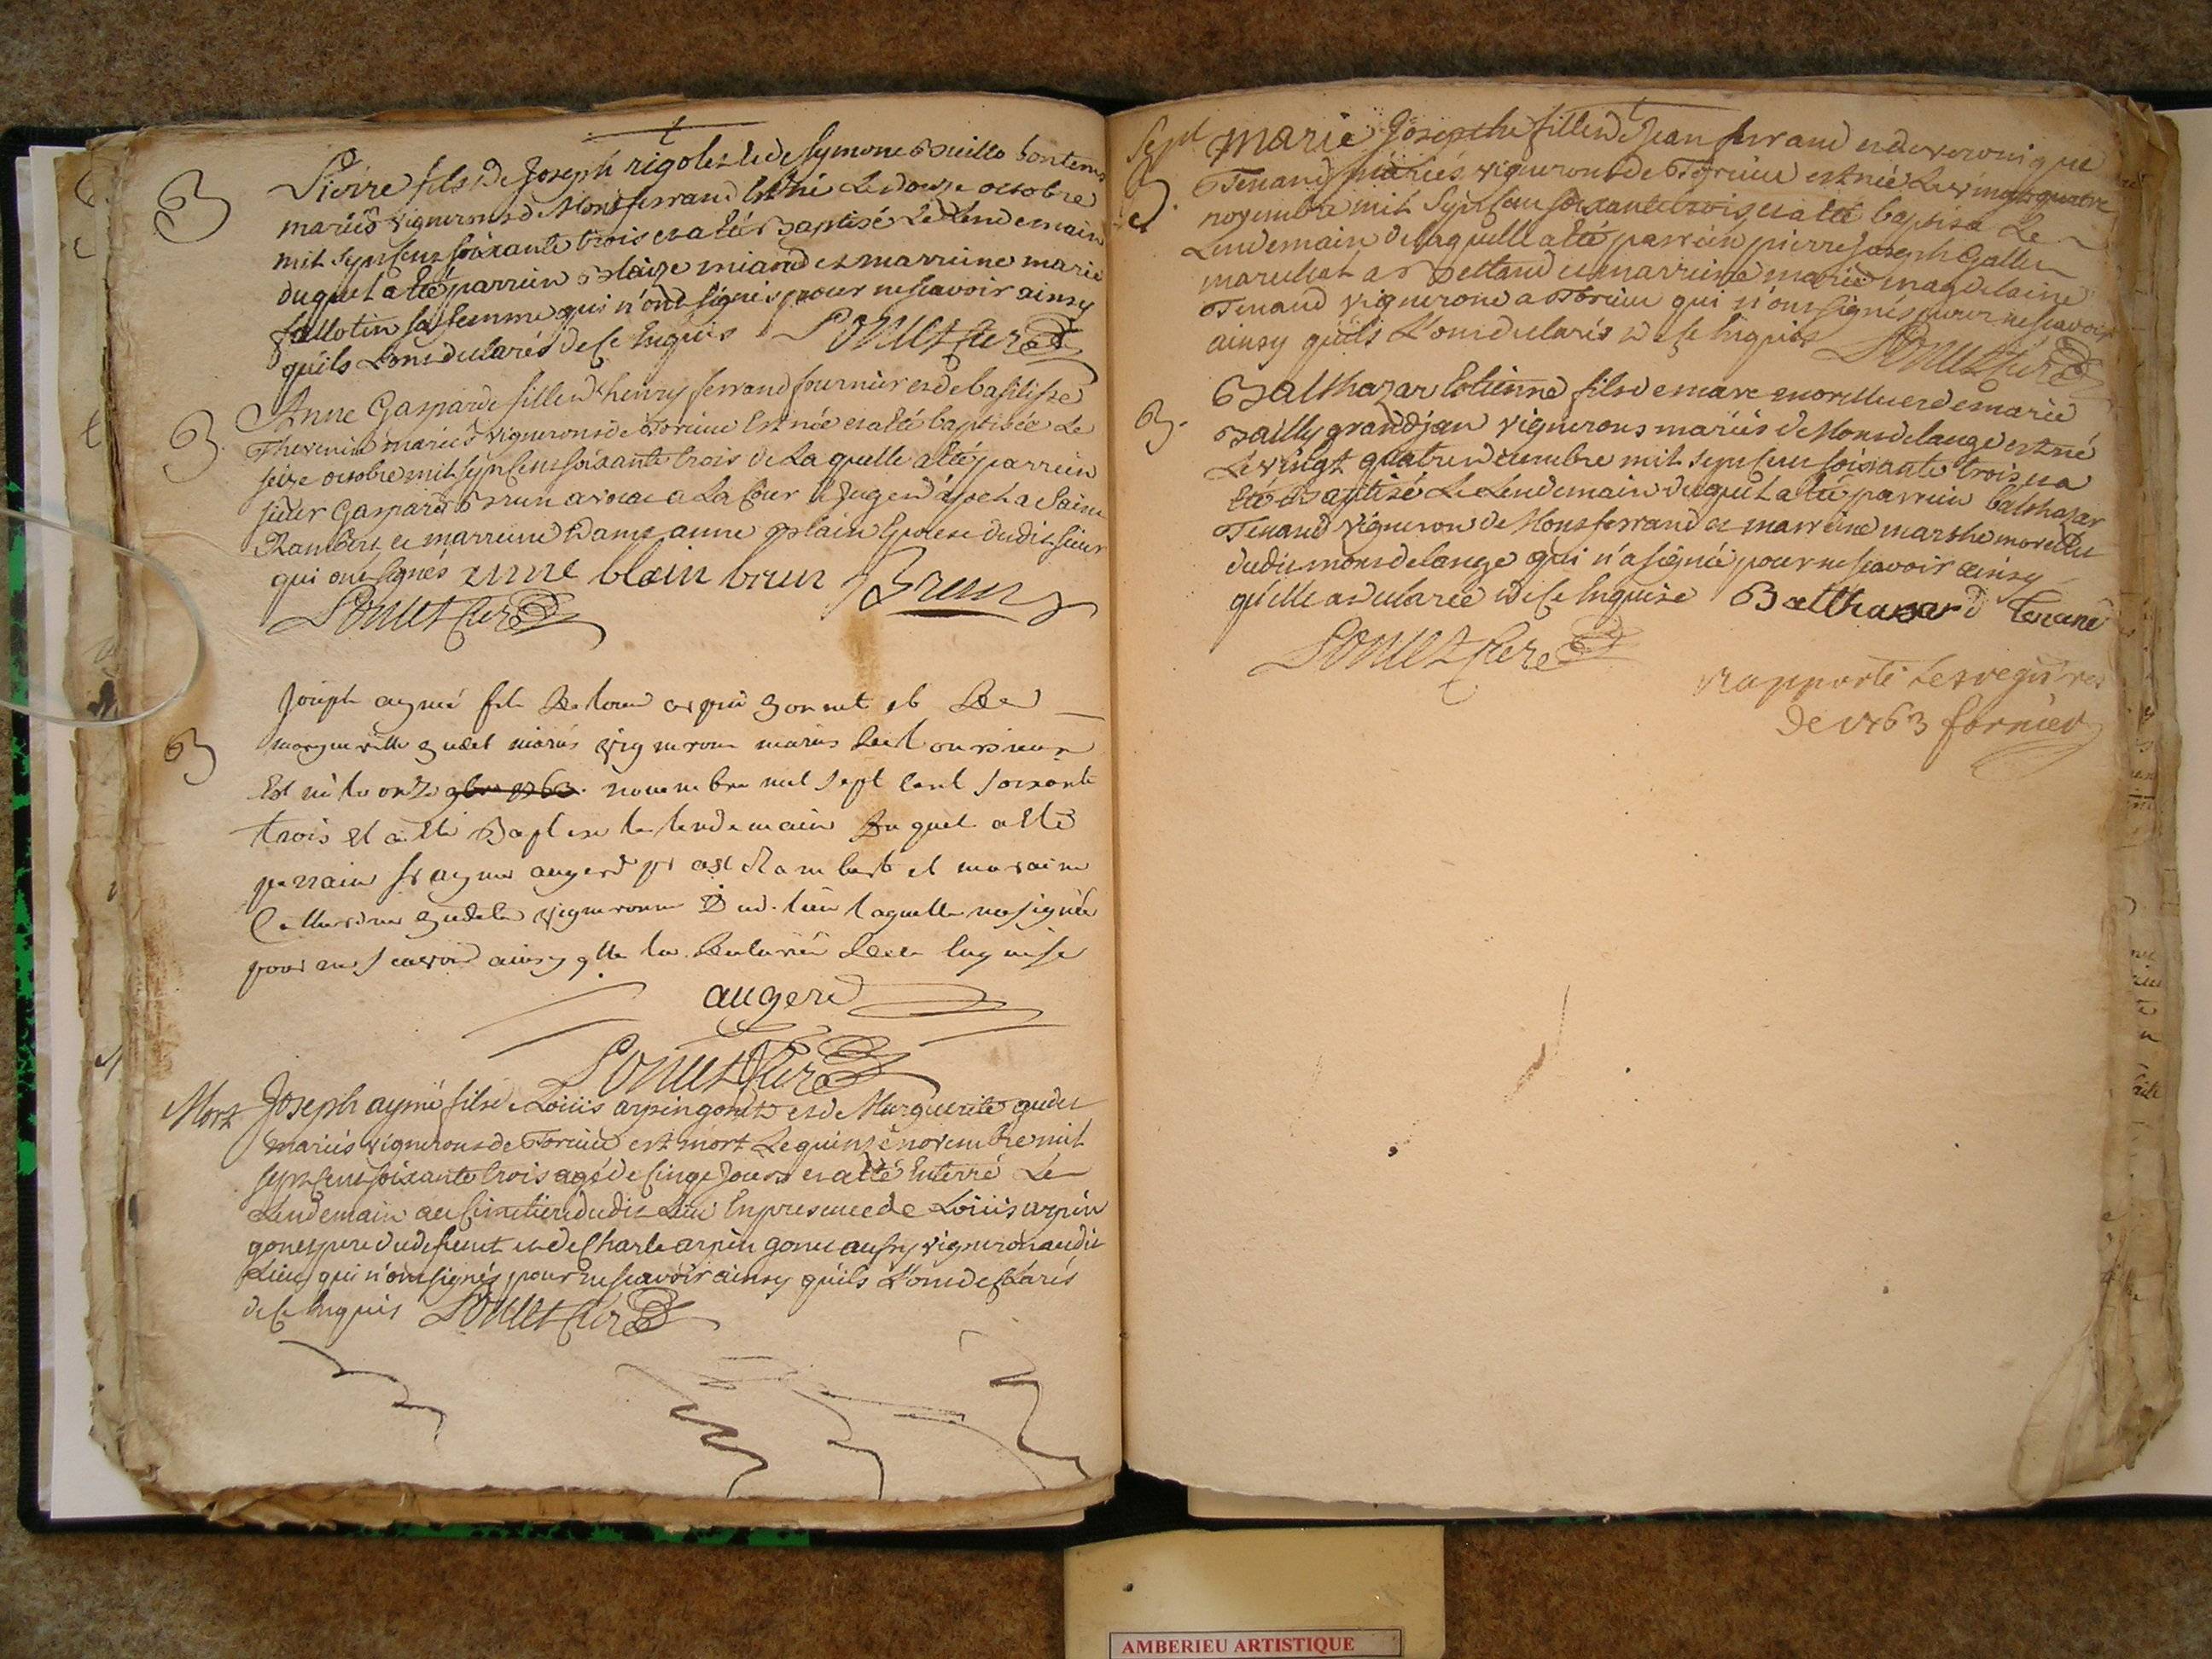 B
Pierre fils de Joseph rigolet et de Symone Bouillo bontems
mariés vignerons de Montferrand Est né Le douze octobre
mil sept cens soixante trois et a été Baptisé Le Lendemain
duquel a été parrein Blaize miand et marreine marie
fallotin sa femme qui n'ont signés pour ne scavoir ainsy
qu'ils L'ont declarés de ce Enquis Ponet Curé
B
Anne Gasparde fille d'henry ferrand fournier et de basilisse
Thevenin mariés vignerons de Torcieu Est née et a été baptisée Le
seize octobre mil sept cens soixante trois de Laquelle a été parrein
sieur Gaspard Brun avocat a La Cour et Juge d'apel a Saint
Rambert et marreine Dame anne Blain Epouse dudit sieur
qui ont signés anne blain brun Brun
Ponet Curé
B
Joseph aymé fils de Louis arpin Gonnet et De
marguerite Gudet mariés vignerons mariés de Torcieux
Est né le onze 9bre 1763 novembre mil sept cent soixante
trois et a été Baptisé le lendemain Duquel a été
parrain sr aymé augerd st Rambert et maraine
Catherine Gudet vigneronne Dud. lieu laquelle na signée
pour ne scavoir ainsy qlle la declarée de ce Enquise
augerd
Ponet Curé
Mort
Joseph aymé fils de Loüis arpin gonet et de Marguerite gudet
mariés vignerons de Torcieu est mort Le quinze novembre mil
sept cens soixante trois agé de Cinq Jours et a été Enterré Le
Lendemain au Cimetiere dudit Lieu En presence de Loüis arpin
gonet pere du defunt et de Charle arpin gonet aussy vigneron audit
Lieu qui n'ont signés pour ne scavoir ainsy qu'ils L'ont déclarés
de ce Enquis Ponet Curé
Sept
B.
Marie Josephe fille de Jean ferrand et de veronique
Tenand mariés vignerons de Torcieu est née Le vingt quatre
novembre mil sept cens soixante trois et a été baptisée Le
Lendemain de laquelle a été parrein pierre Joseph Gallet
marechal a et marreine marie magdelaine
Tenand vignerone a Torcieu qui n'ont signés pour ne scavoir
ainsy qu'ils L'ont declarés de ce Enquis Ponet Curé
B.
Balthazar Etienne fils de marc morellet et de marie
Bailly grandjan vignerons mariés de Montdelange est né
Le vingt quatre decembre mil sept cens soixante trois et a
été Baptisé Le Lendemain duquel a été parrein balthazar
Tenand vigneron de Montferrand et marreine marthe morellet
dudit montdelange qui n'a signée pour ne scavoir ainsy
qu'elle a declarée de ce Enquise Balthazard tenand
Ponet Curé
rapporté les registres
de 1763 fornier
AMBERIEU ARTISTIQUE